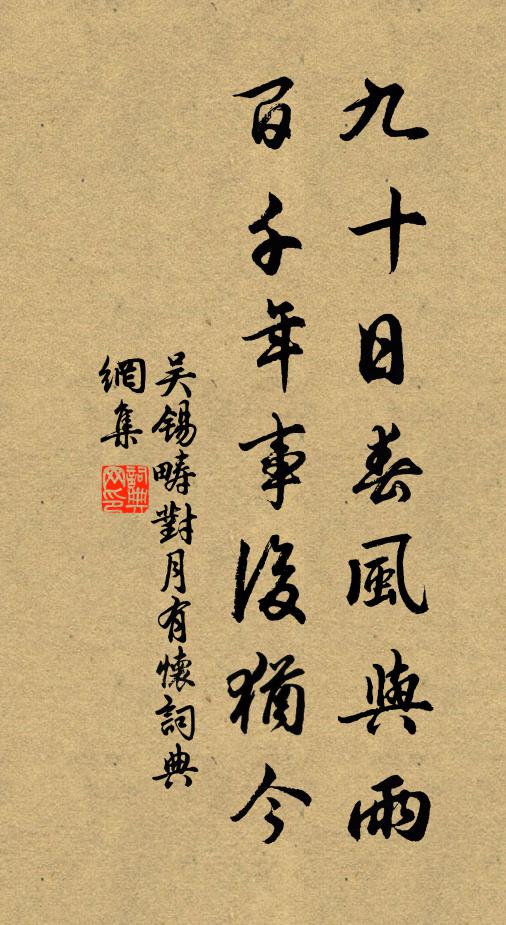 九十日春風與雨
百千年事後猶今
吳錫疇對月有懷詞典
網集
詞典網印